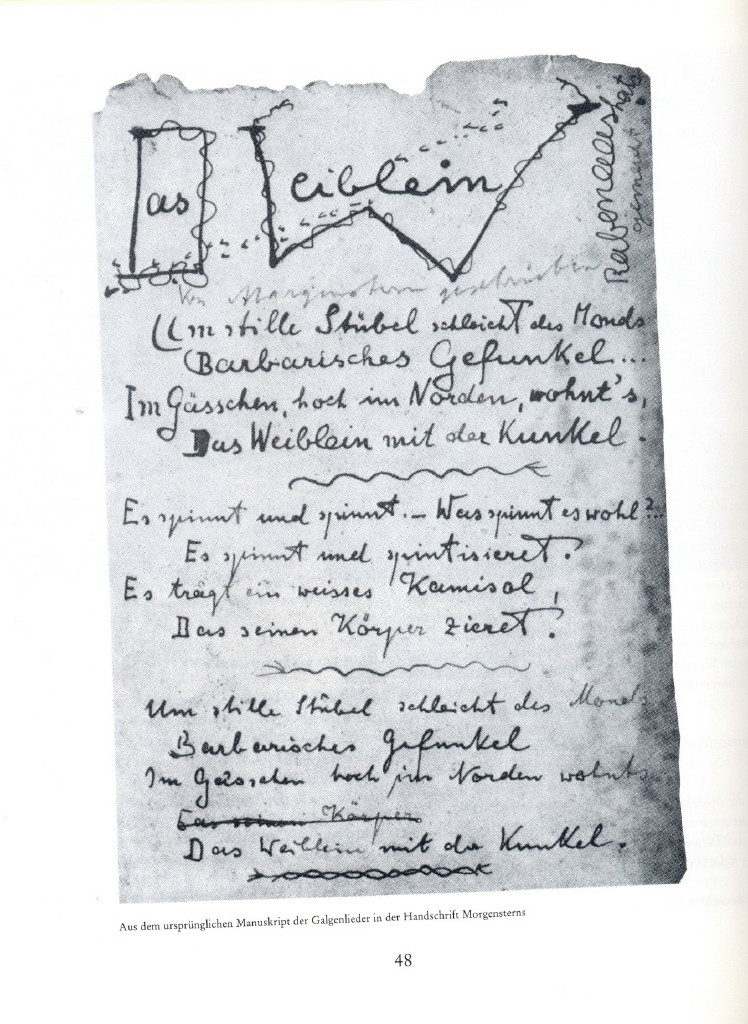 Das Weiblein
Rabenaas hats
gemacht.
Von Morgenstern geschrieben
Um stille Stübel schleicht des Monds
Barbarisches Gefunkel...
Im Gässchen, hoch im Norden, wohnt's,
Das Weiblein mit der Kunkel.
Es spinnt und spinnt. – Was spinnt es wohl?..
Es spinnt und spintisieret.
Es trägt ein weisses Kamisol,
Das seinen Körper zieret.
Um stille Stübel schleicht des Monds
Barbarisches Gefunkel
Im Gässchen hoch im Norden wohnts
Das seinen Körper
Das Weiblein mit der Kunkel.
Aus dem ursprünglichen Manuskript der Galgenlieder in der Handschrift Morgensterns
48